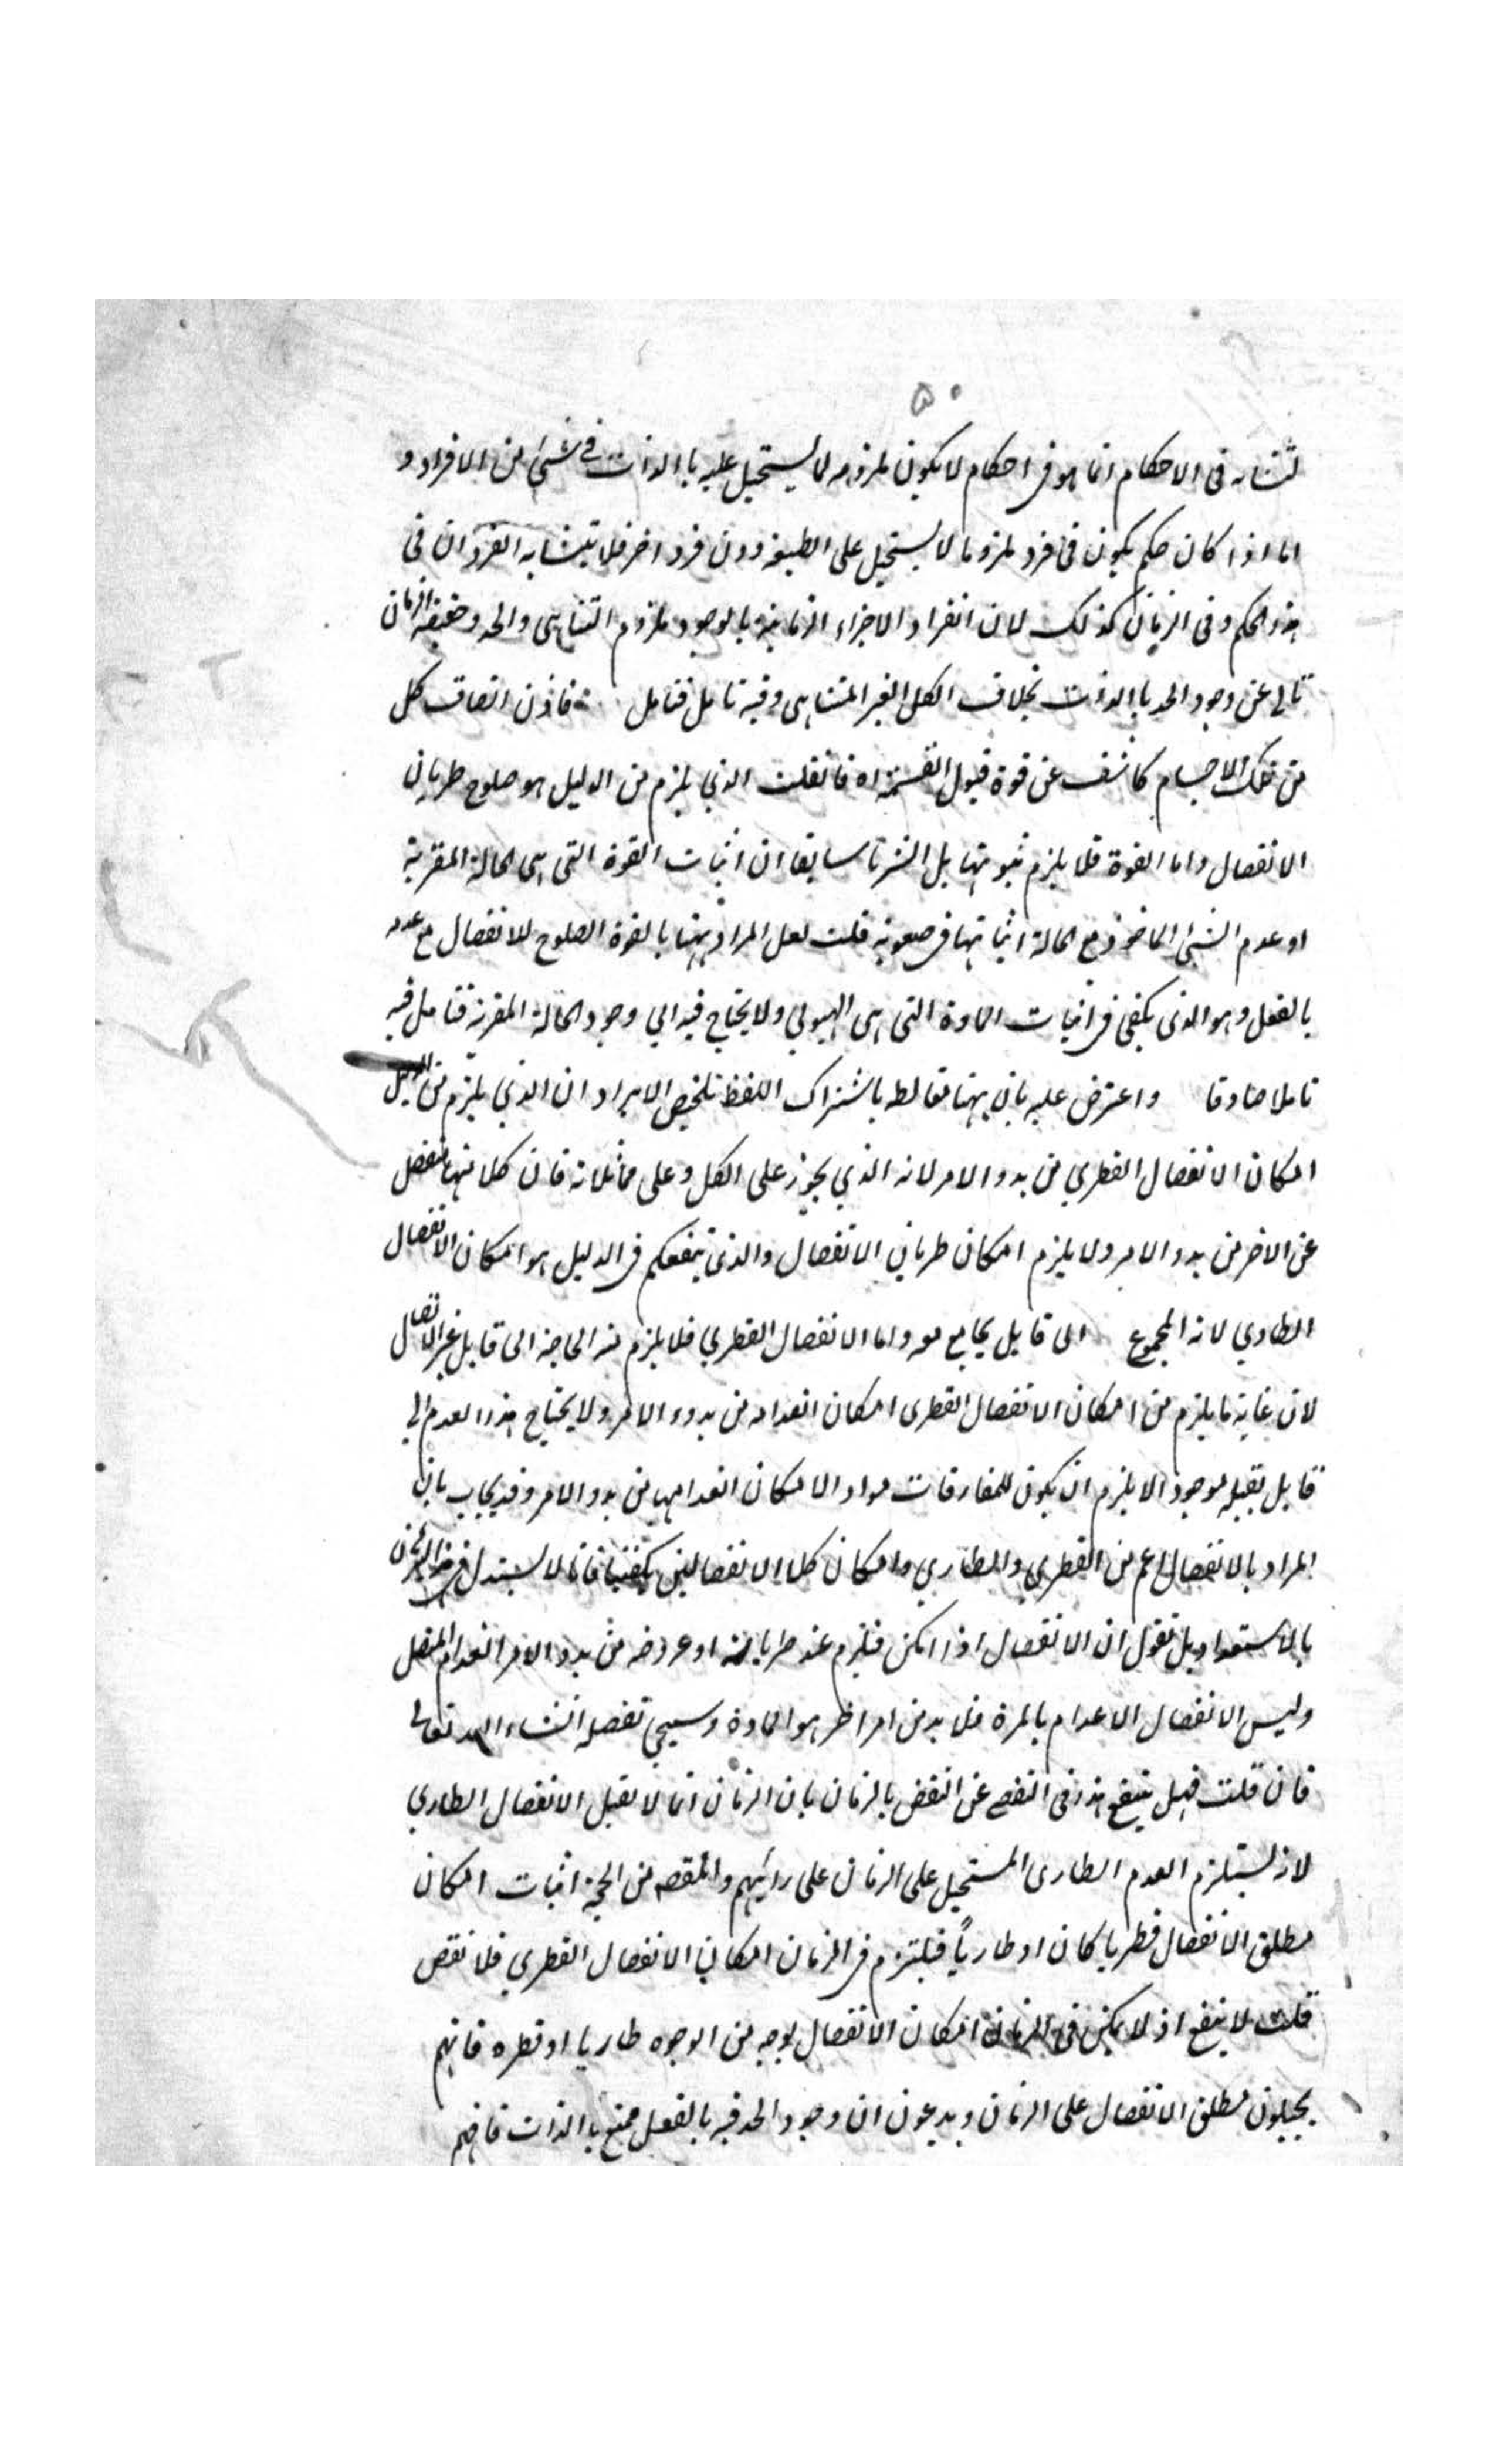 ۵۰
تشابه فى الاحكام انما هو فى احكام لا يكون ملزومه لما يستحيل عليه بالذات فى شئ من الافراد و
اما اذا كان حكم يكون فى فرد ملزوما لما يستحيل على الطبيعة دون فرد اخر فلا يتشابه الفردان فى
هذا الحكم وفى الزمان كذلك لان انفراد الاجزاء الزمانية بالوجود ملزوم التناهى والحد وحقيقة الزمان
تابى عن وجود الحد بالذات بخلاف الكل الغير المتناهى وفيه تامل فتامل فاذن اتصاف كل
من تلك الاجسام كاشف عن قوة قبول القسمة اه فانقلت الذي يلزم من الدليل هو صلوح طريان
الانفصال واما القوة فلا يلزم ثبوتها بل اشرنا سابقا ان اثبات القوة التى هى الحالة المقربة
او عدم الشئ الماخوذ مع الحالة اثباتها فى صعوبة قلت لعل المراد ههنا بالقوة الصلوح للانفصال مع عدمه
بالفعل وهو الذى يكفى فى اثبات المادة التى هى الهيولي ولا يحتاج فيه الي وجود الحالة المقربة فتامل فيه
تاملا صادقا واعترض عليه بان ههنا تغالط باشتراك اللفظ تلخيص الايراد ان الذي يلزم من الدليل
امكان الانفصال الفطري من بدو الامر لانه الذي يجوز على الكل وعلى مماثلاته فان كلا منها منفصل
عن الاخر من بدو الامر ولا يلزم امكان طريان الانفصال والذى ينفعكم فى الدليل هو امكان الانفصال
الطاري لانه المحوج الى قابل يجامع معه واما الانفصال الفطري فلا يلزم منه الحاجة الى قابل غير الاتصال
لان غاية ما يلزم من امكان الانفصال الفطرى امكان انعدامه من بدو الامر ولا يحتاج هذا العدم الي
قابل يقبله موجود الا يلزم ان يكون للمفارقات مواد لامكان انعدامها من بدو الامر وقد يجاب بان
المراد بالانفصال اعم من الفطري والطاري وامكان كلا الانفصالين يكفينا فانا لا نستدل
بالاستعداد بل نقول ان الانفصال اذا امكن فيلزم عند طريانه او عروضه من بدو الامر انعدام المتصل
وليس الانفصال الاعدام بالمرة فلا بد من امر اخر هو المادة وسيجئ تفصيله انشاء الله تعالى
فان قلت فهل ينفع هذا فى التفصى عن النقض بالزمان بان الزمان انما لا يقبل الانفصال الطاري
لانه يستلزم العدم الطارى المستحيل على الزمان على رايهم والمقصود من الحجة اثبات امكان
مطلق الانفصال فطريا كان او طارياً فيلتزم فى الزمان امكان الانفصال الفطري فلا نقض
قلت لا ينفع اذ لا يمكن فى الزمان امكان الانفصال بوجه من الوجوه طاريا او فطرة فانهم
يحيلون مطلق الانفصال على الزمان ويدعون ان وجود الحد فيه بالفعل ممتنع بالذات فافهم